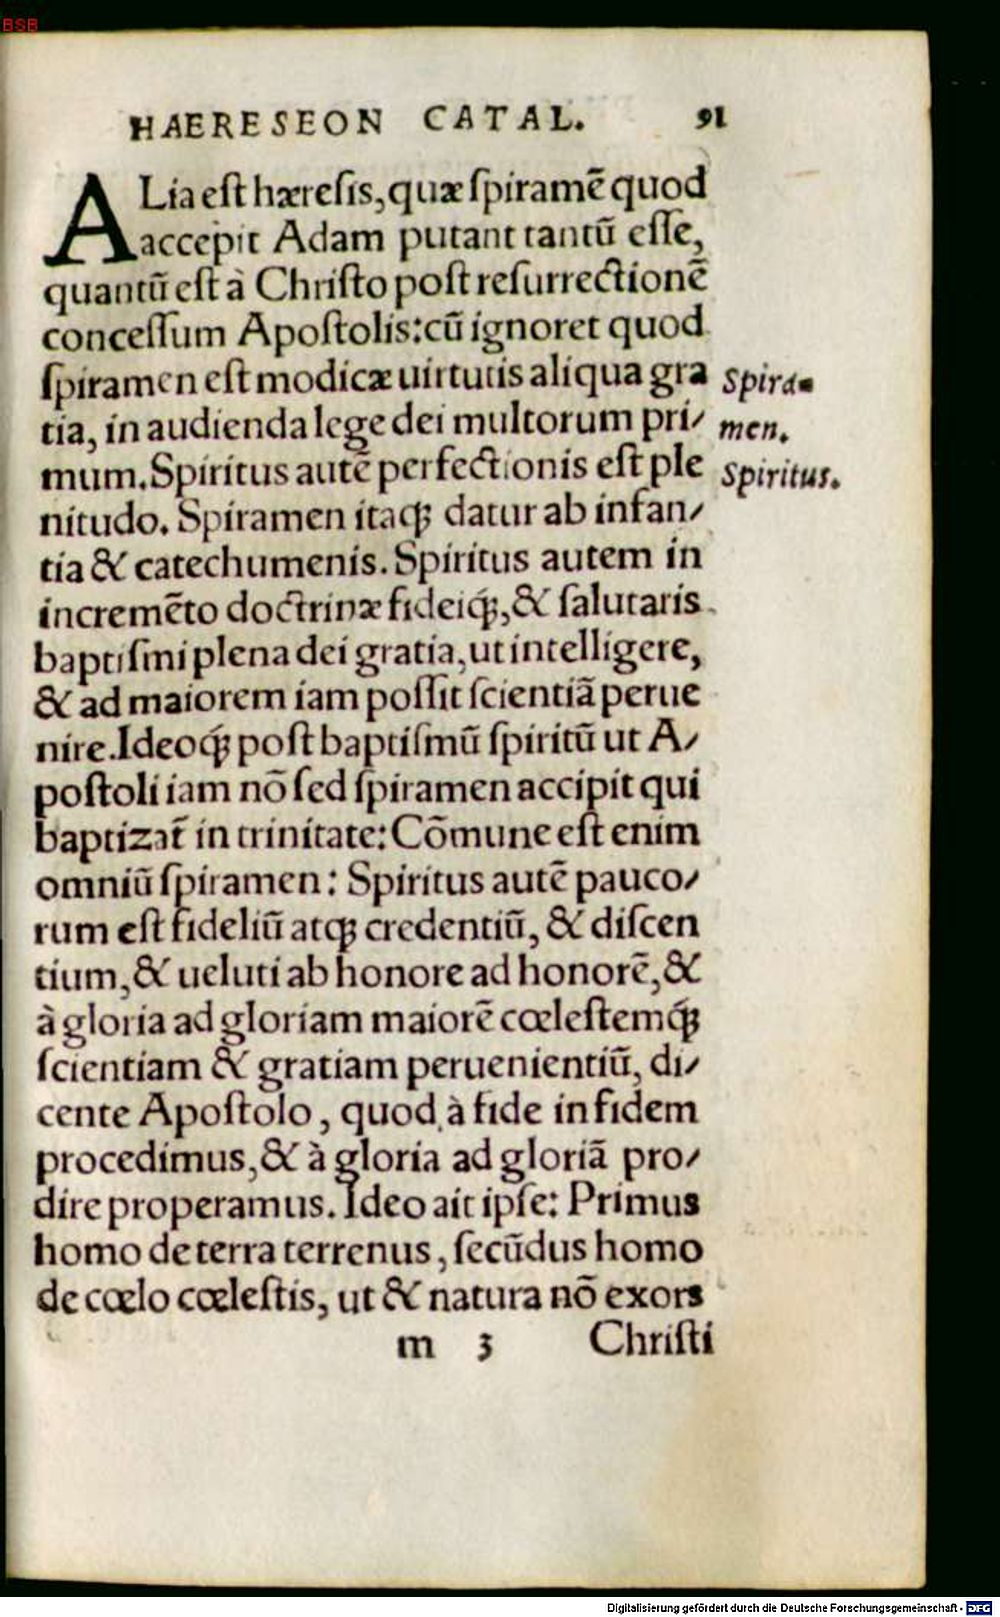 BSB
HAERESEON CATAL. 91
ALia est hæresis, quæ spiramē quod
accepit Adam putant tantū esse,
quantū est à Christo post resurrectionē
concessum Apostolis: cū ignoret quod
spiramen est modicæ uirtutis aliqua gra
tia, in audienda lege dei multorum pri/
mum. Spiritus autē perfectionis est ple
nitudo. Spiramen itaqꝫ datur ab infan/
tia & catechumenis. Spiritus autem in
incremēto doctrinæ fideiqꝫ́, & salutaris
baptismi plena dei gratia, ut intelligere,
& ad maiorem iam possit scientiā perue
nire. Ideoqꝫ́ post baptismū spiritū ut A/
postoli iam nō sed spiramen accipit qui
baptizat̄ in trinitate: Cōmune est enim
omniū spiramen: Spiritus autē pauco/
rum est fideliū atqꝫ credentiū, & discen
tium, & ueluti ab honore ad honorē, &
à gloria ad gloriam maiorē cœlestemqꝫ́
scientiam & gratiam peruenientiū, di/
cente Apostolo, quod à fide in fidem
procedimus, & à gloria ad gloriā pro/
dire properamus. Ideo ait ipse: Primus
homo de terra terrenus, secūdus homo
de cœlo cœlestis, ut & natura nō exors
m 3 Christi
Spira-
men.
Spiritus.
Digitalisierung gefördert durch die Deutsche Forschungsgemeinschaft - DFG